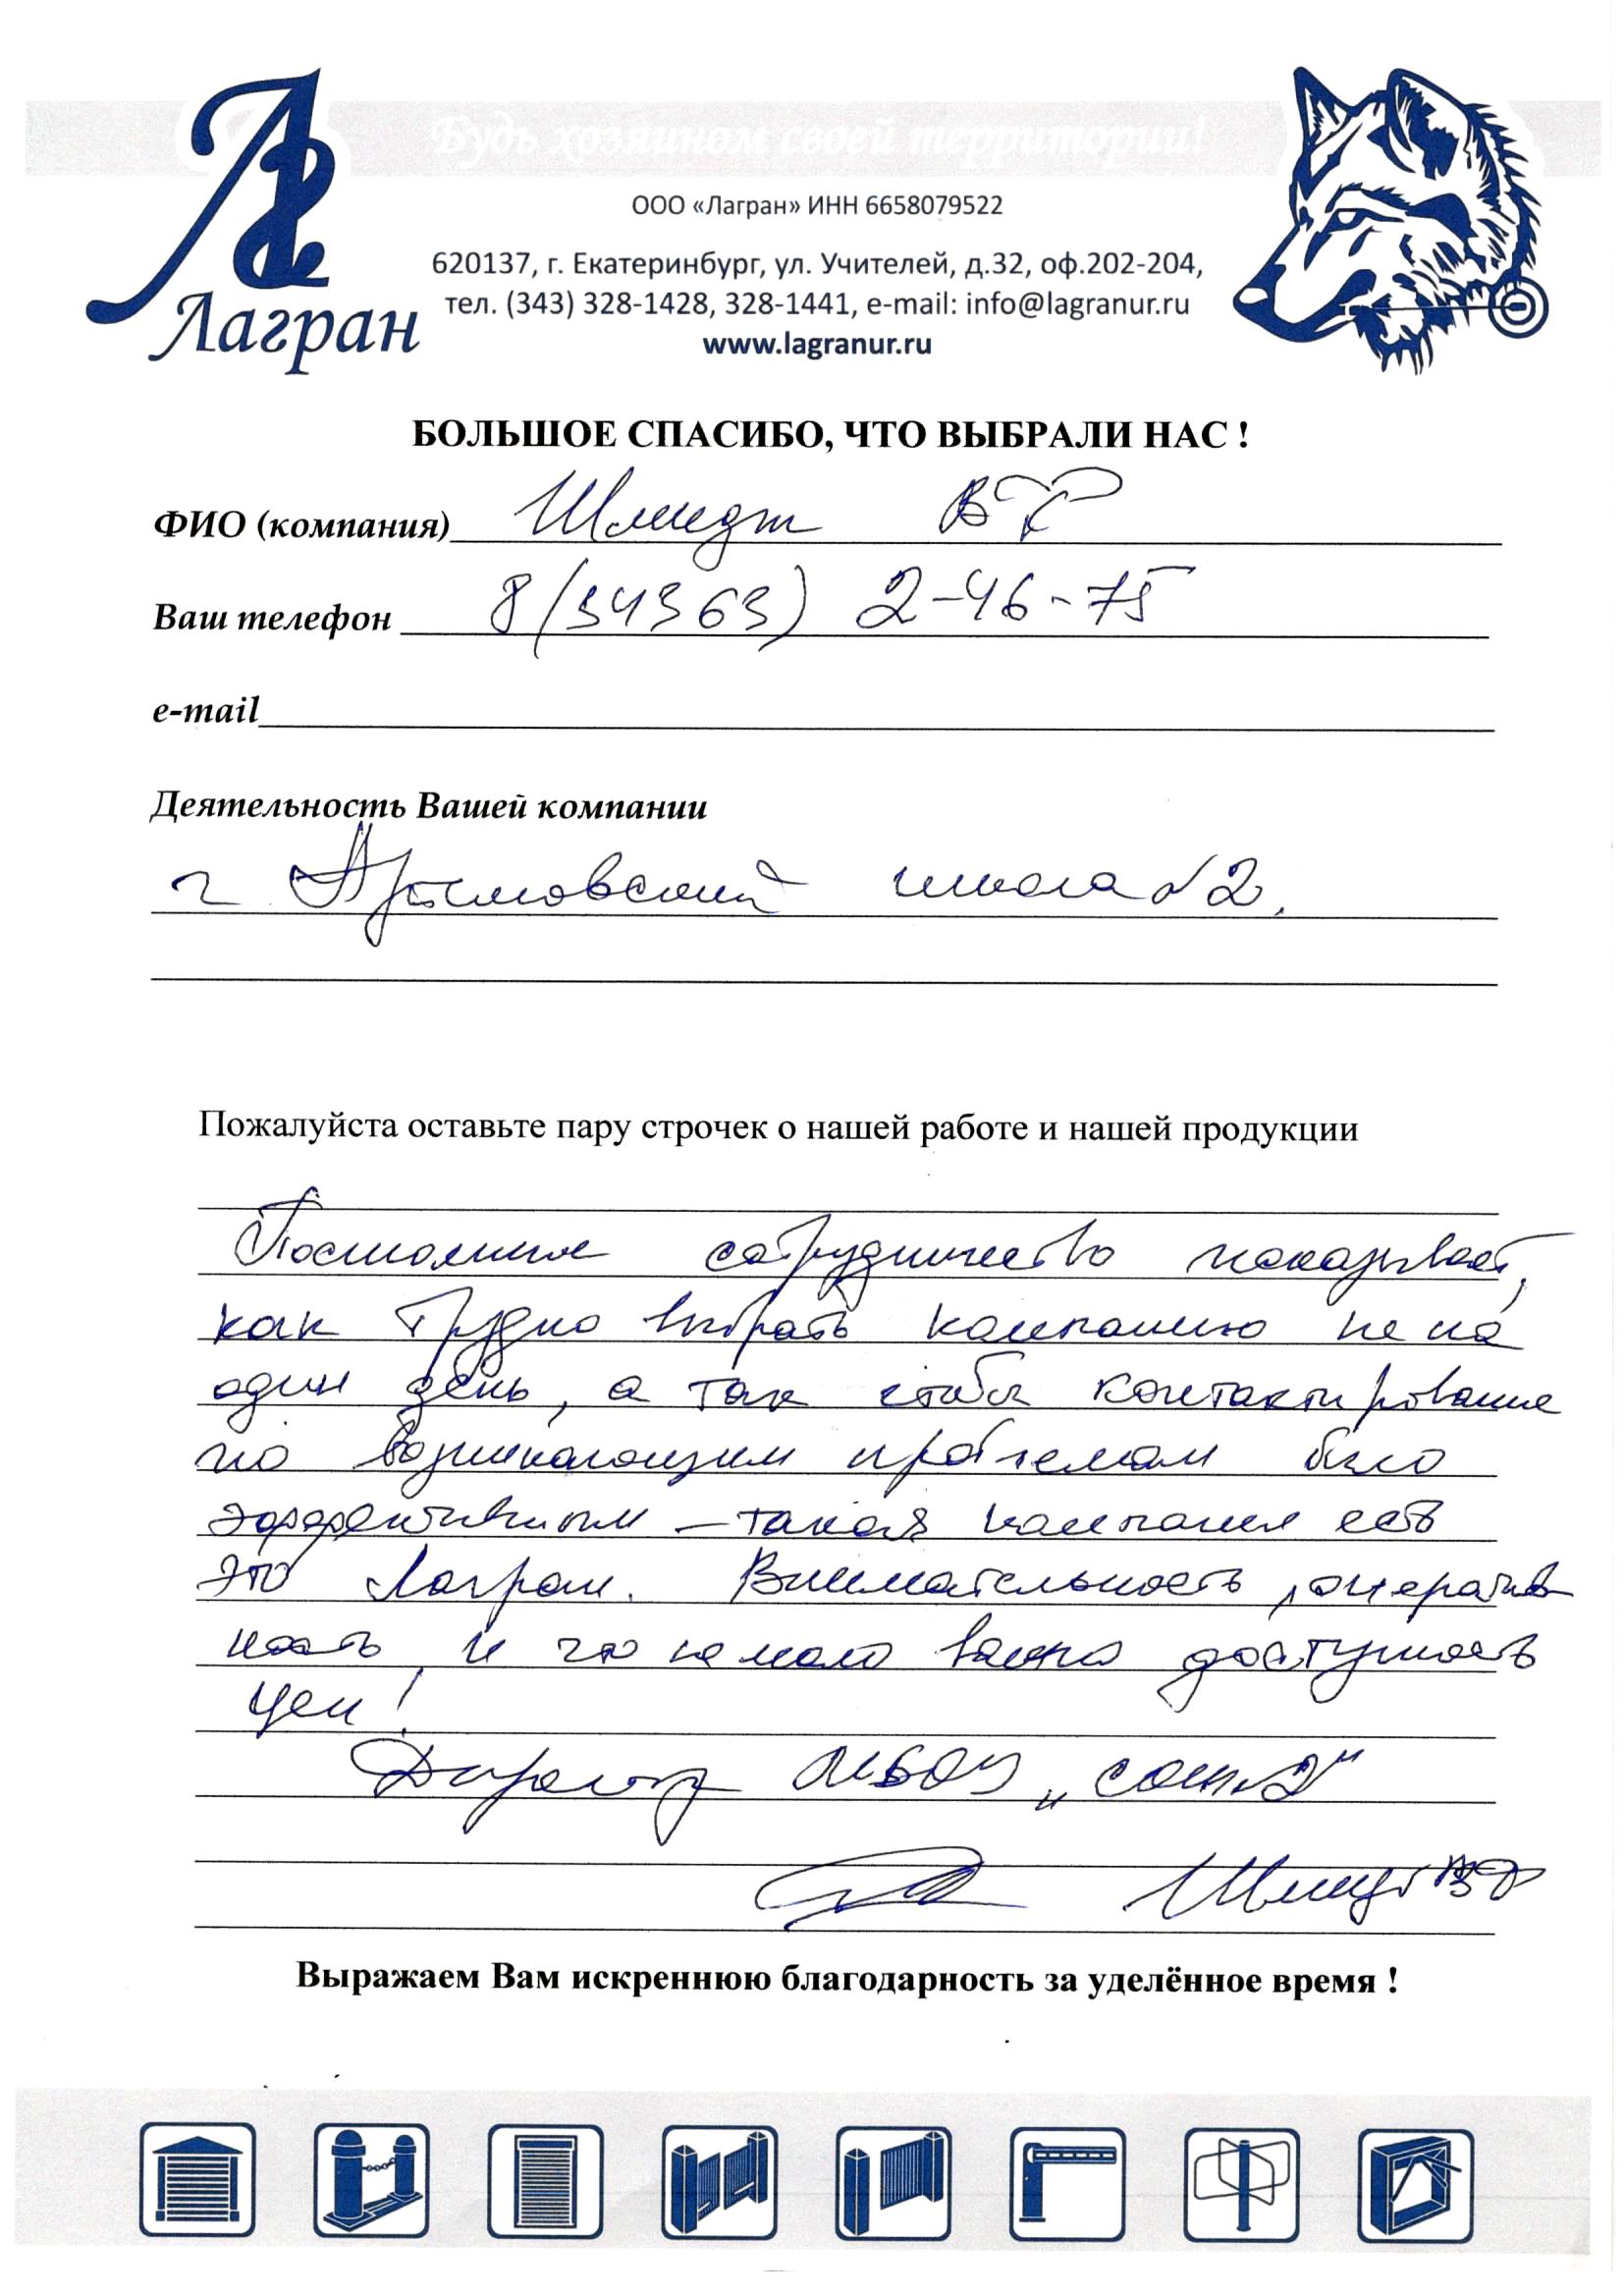 Будь хозяином своей территории!
Лагран
ООО «Лагран» ИНН 6658079522
620137, г. Екатеринбург, ул. Учителей, д.32, оф.202-204,
тел. (343) 328-1428, 328-1441, e-mail: info@lagranur.ru
www.lagranur.ru
БОЛЬШОЕ СПАСИБО, ЧТО ВЫБРАЛИ НАС !
ФИО (компания) Шмидт
Ваш телефон 8(34363) 2-46-75
e-mail
Деятельность Вашей компании
г Артемовский школа №2.
Пожалуйста оставьте пару строчек о нашей работе и нашей продукции
сотрудничество показывает,
как трудно выбрать компанию не на
один день, а так чтобы контактирование
по возникающим проблемам было
эффективным – такая компания есть
это Лагран. Внимательность, оператив
ность и что не мало важно доступность
цен!
Директор МБОУ „СОШ№2"
Шмидт
Выражаем Вам искреннюю благодарность за уделённое время !